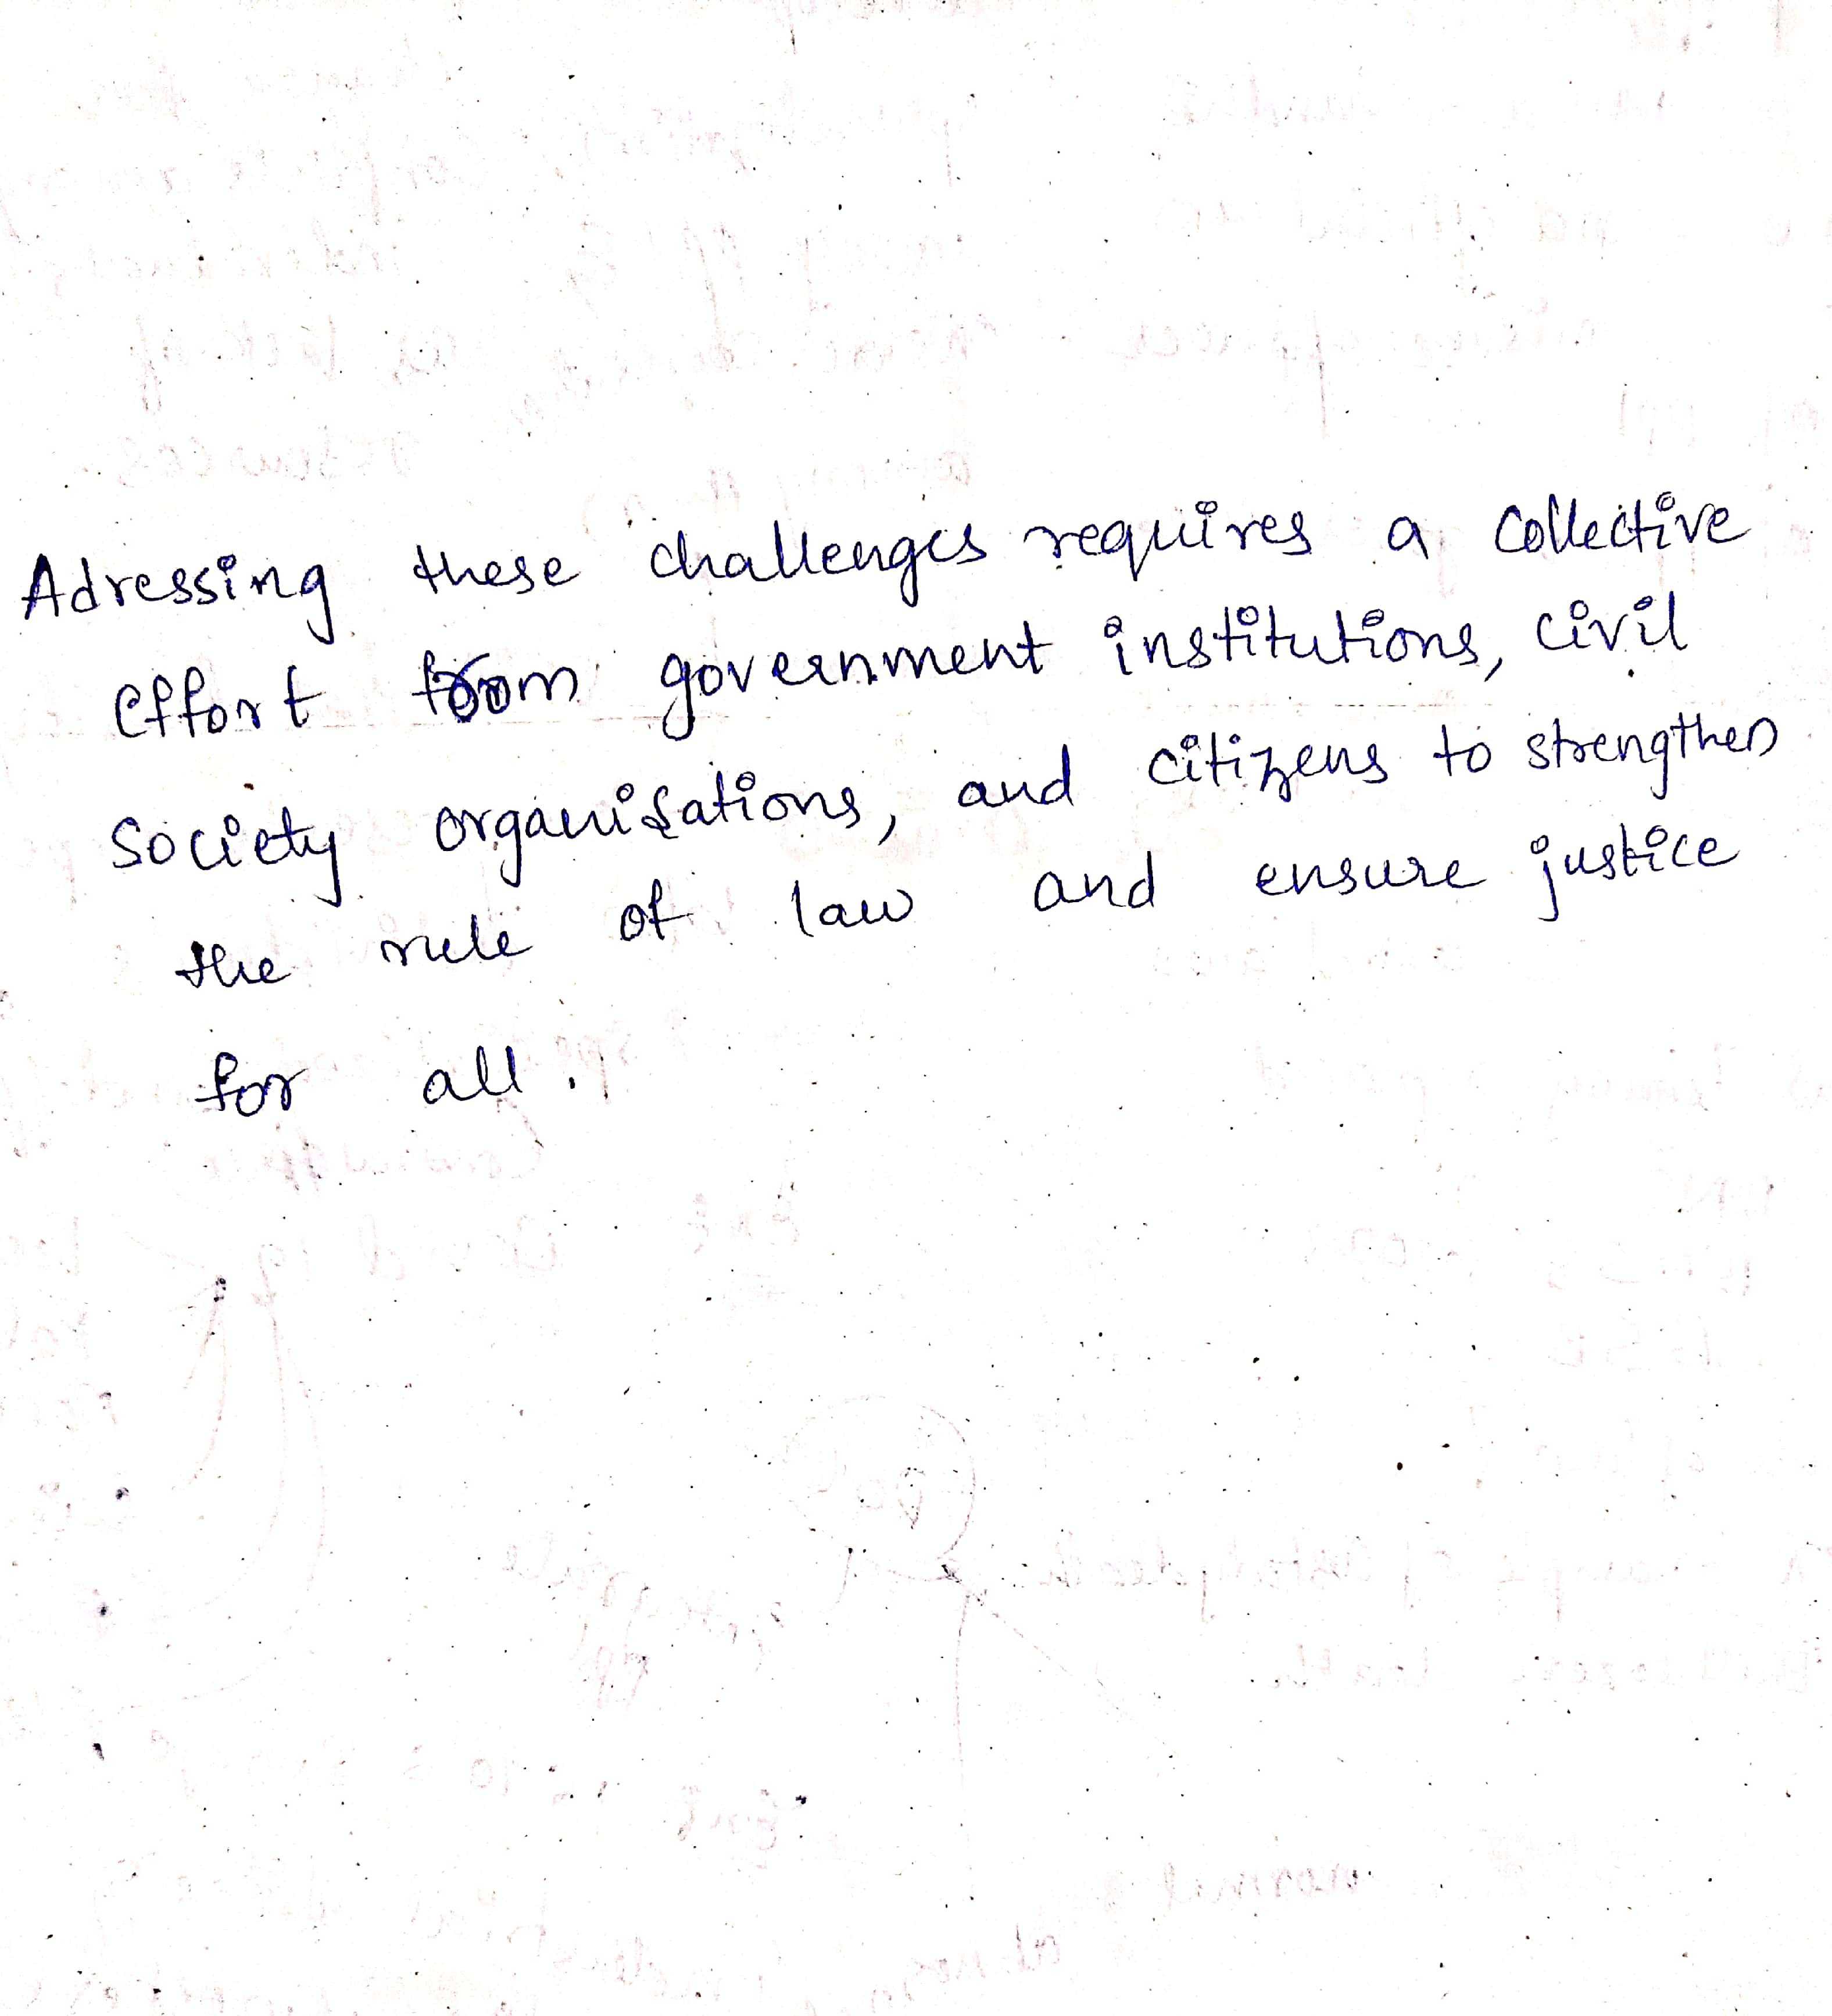 Adressing these challenges requires a collective
effort from government institutions, civil
society organisations, and citizens to strengthen
the rule of law and ensure justice
for all.